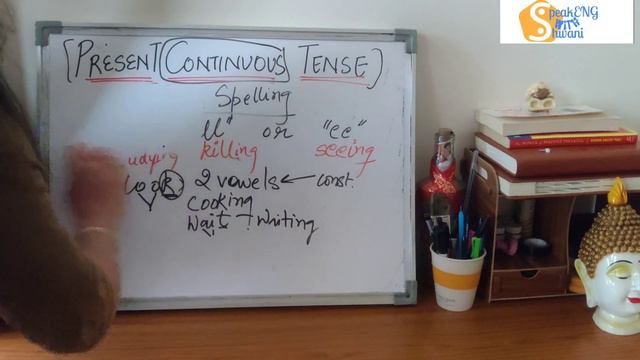 SpeakENG
Shivani
[PRESENT CONTINUOUS TENSE)
Spelling
ll" or "ee"
udying killing seeing
ook 2 vowels ← const.
cooking
Wait → Waiting